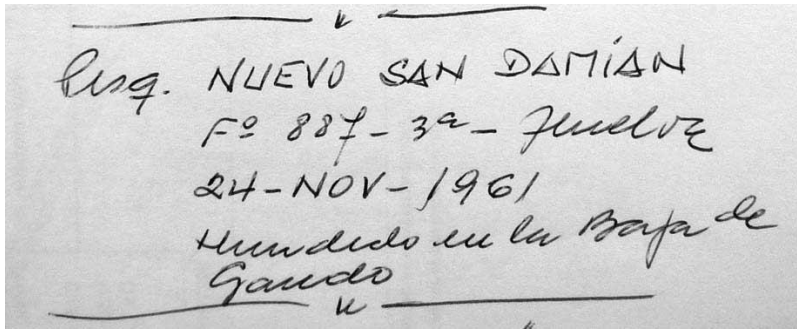 Pesq. NUEVO SAN DAMIÁN
Fº 887 - 3ª - Huelva
24-NOV-1961
Hundido en la Baja de
Gando